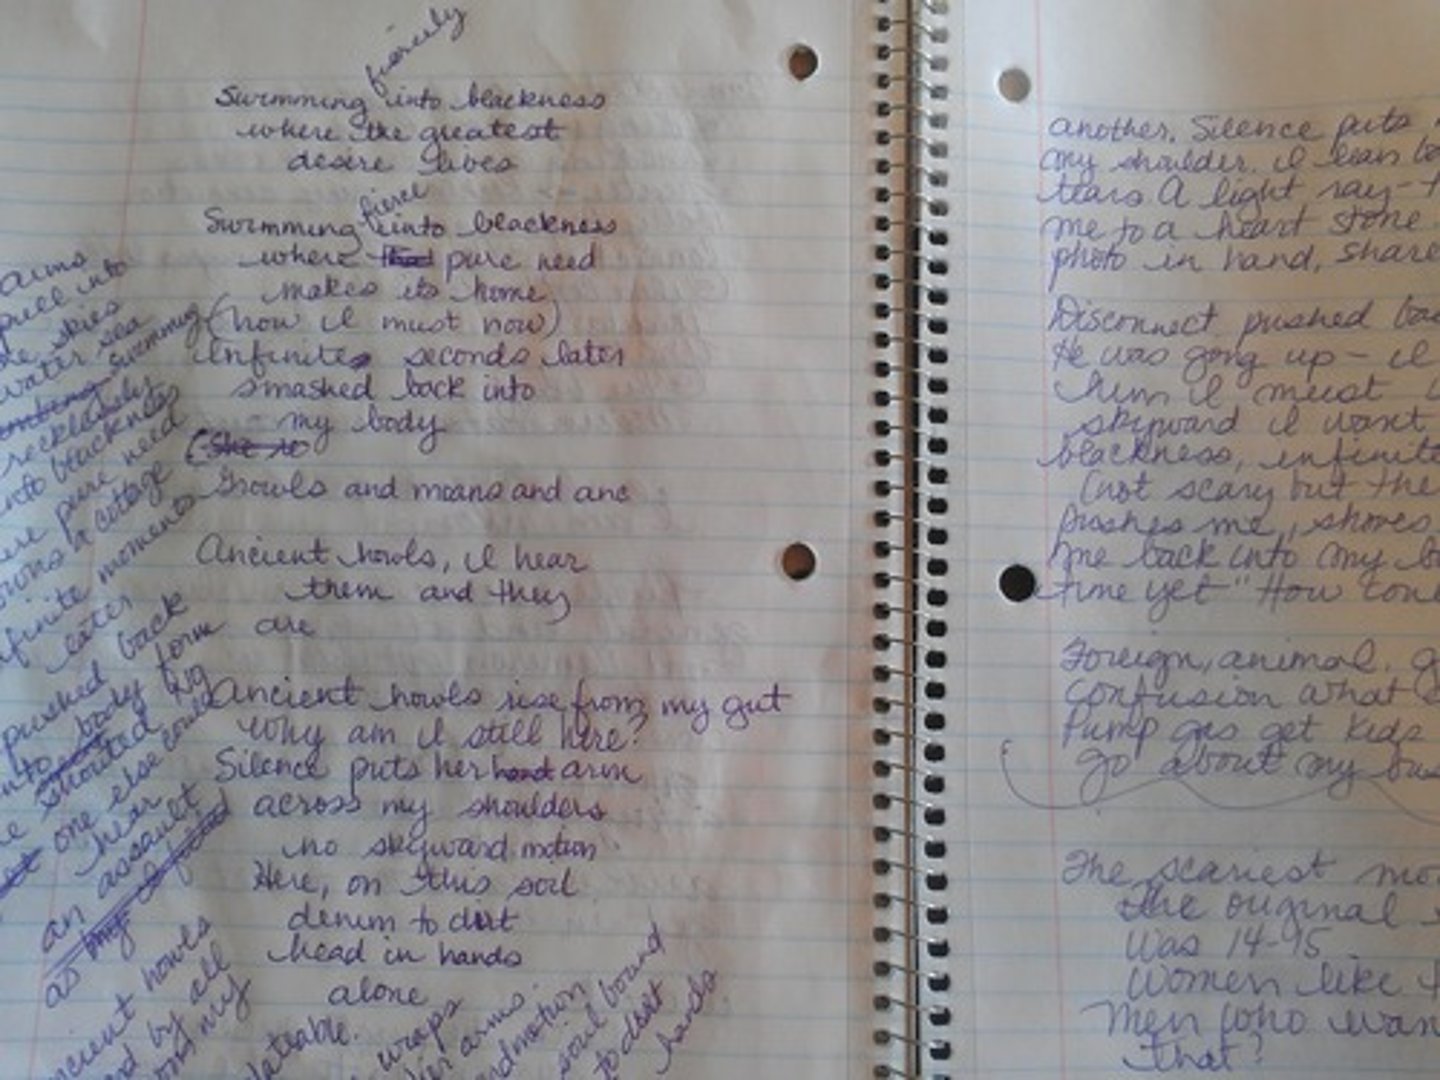 fiercely
Swimming into blackness
where the greatest
desire lives
fierce
Swimming into blackness
where that pure need
makes its home
(how I must now)
Infinite seconds later
smashed back into
my body
(She so
Growls and moans and anc
Ancient howls, I hear
them and they
are
Ancient howls rise from my gut
Why am I still here?
Silence puts her hand arm
across my shoulders
no skyward motion
Here, on this soil
denim to dirt
head in hands
alone
arms
pull into
skies
water sea
swimming
recklessly
into blackness
pure need
owns a cottage
infinite moments
later
pushed back
into body form
shouted
one else could
hear
an assault
as my
ancient howls
by all
from my
wraps
arms.
soul bound
to dirt
hands
another. Silence puts
my shoulder. I lean
tears A light ray
me to a heart stone
photo in hand, share
Disconnect pushed
He was gong up - I
him I must
skyward I want
blackness, infinite
(not scary but the
pushes me, shoves
me back into my
time yet" How
Foreign, animal.
confusion what
Pump gas get kids
go about my
The scariest
the original
Was 14-15
Women like
Men who
that?